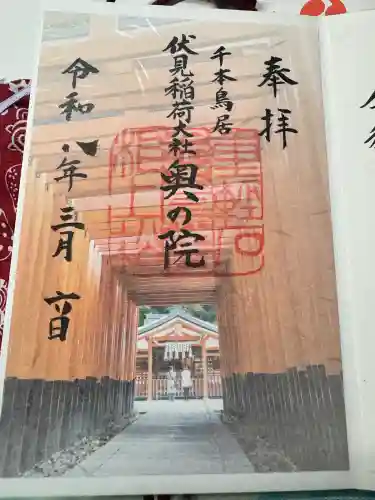 奉拝
千本鳥居
伏見稲荷大社
奥の院
令和八年三月六日